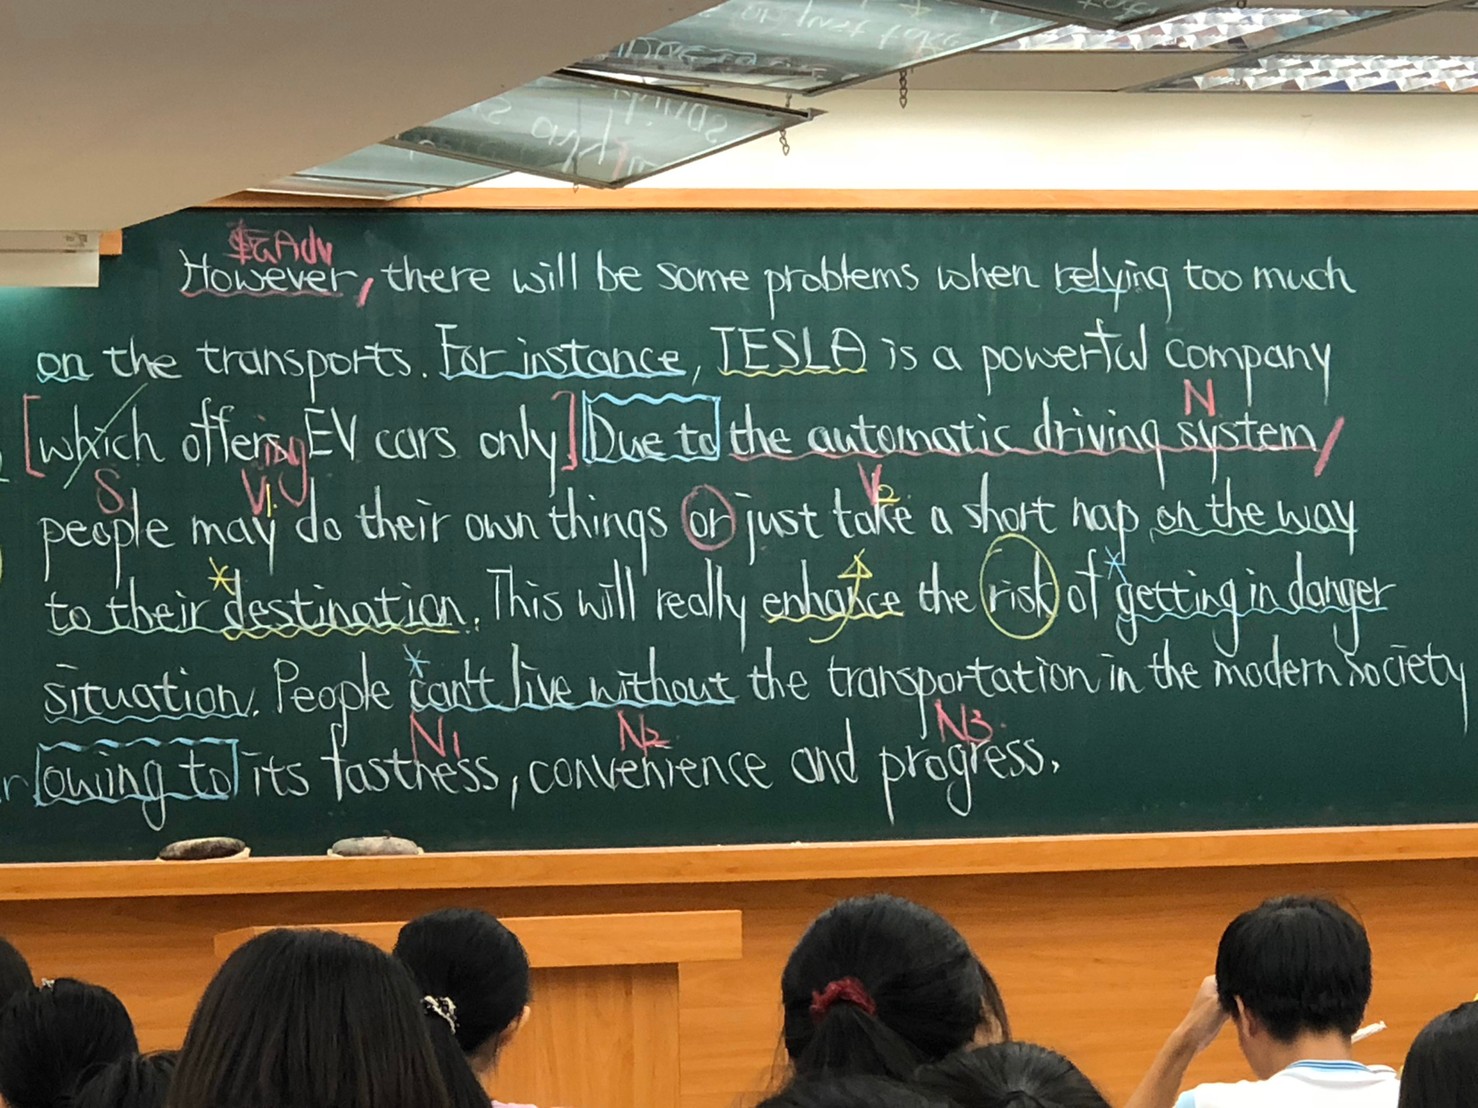 転Adv
However, there will be some problems when relying too much
on the transports. For instance, TESLA is a powerful company
N
[which offering EV cars only] Due to the automatic driving system,
S V1 V2
people may do their own things or just take a short nap on the way
to their *destination. This will really enhance the risk of *getting in danger
situation. People *can't live without the transportation in the modern society
N1 N2 N3
owing to its fastness, convenience and progress.